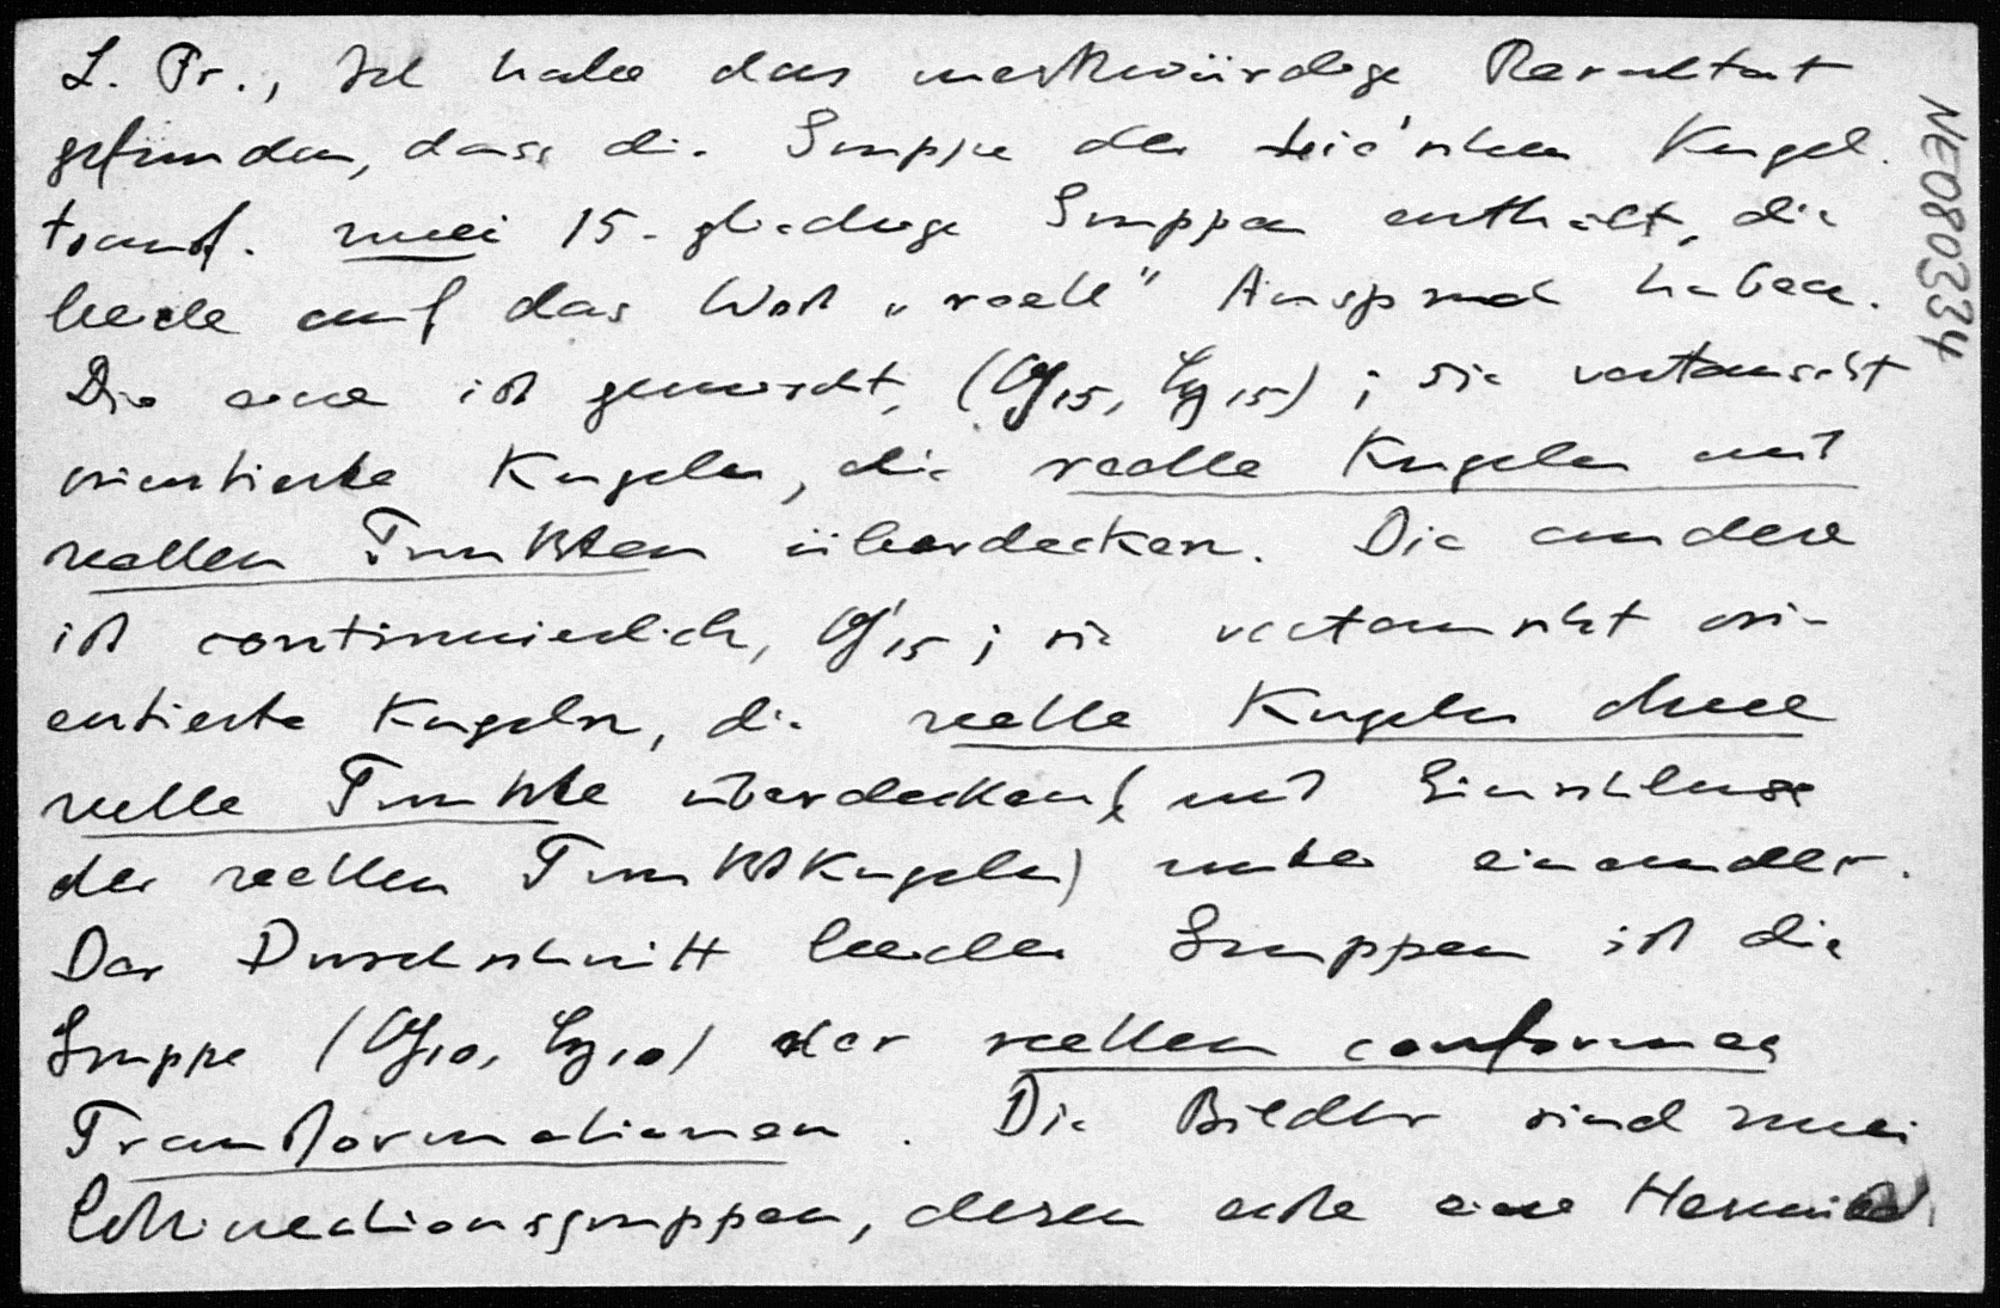 L. Fr., Ich habe das merkwürdige Resultat
gefunden, dass die Gruppe der Lie'schen Kugel-
transf. zwei 15-gliedrige Gruppen enthält, die
beide auf das Wort „reell" Anspruch haben.
Die eine ist gemischt, (G15, H15); sie vertauscht
orientierte Kugeln, die reelle Kugeln mit
reellen Punkten überdecken. Die andere
ist continuierlich, G'15; sie vertauscht ori-
entierte Kugeln, die reelle Kugeln ohne
reelle Punkte überdecken (mit Einschluss
der reellen Punktkugeln) unter einander.
Der Durchschnitt beider Gruppen ist die
Gruppe (G10, H10) der reellen conformen
Transformationen. Die Bilder sind zwei
Collineationsgruppen, deren erste eine
NE080334